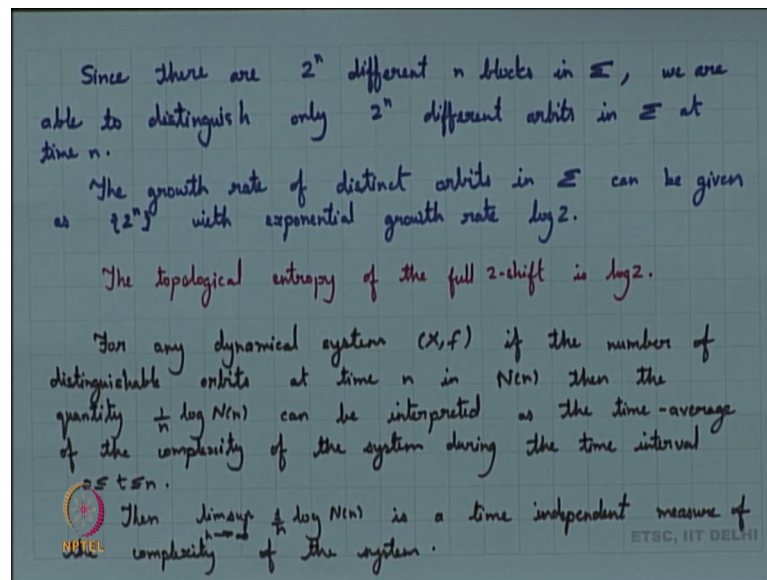 Since there are 2ⁿ different n blocks in Σ, we are
able to distinguish only 2ⁿ different orbits in Σ at
time n.
The growth rate of distinct orbits in Σ can be given
as {2ⁿ} with exponential growth rate log 2.
The topological entropy of the full 2-shift is log 2.
For any dynamical system (X,f) if the number of
distinguishable orbits at time n in N(n) then the
quantity 1/n log N(n) can be interpreted as the time-average
of the complexity of the system during the time interval
0≤t≤n.
Then limsup n→∞ 1/n log N(n) is a time independent measure of
the complexity of the system.
NPTEL
ETSC, IIT DELHI